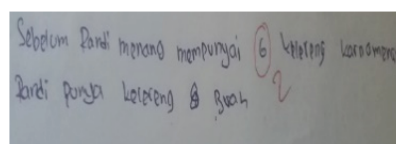 Sebelum Rardi menang mempunyai 6 kelereng karnomena
Rardi punya kelereng 8 Buah 2